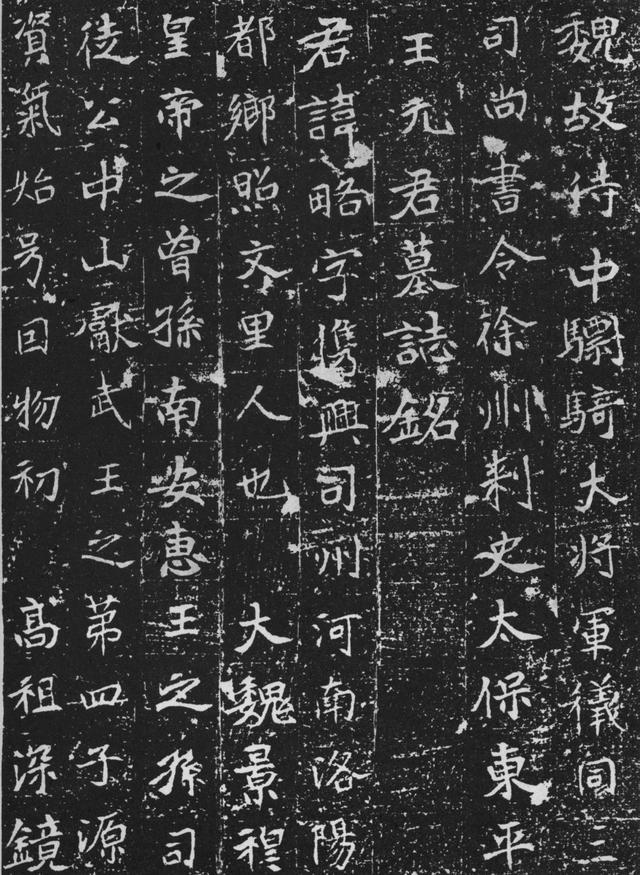 魏故侍中驃騎大将軍儀同三
司尚書令徐州刺史太保東平
王元君墓誌銘
君諱略字儁興司州河南洛陽
都鄉照文里人也 大魏景穆
皇帝之曾孫南安惠王之孫司
徒公中山獻武王之第四子源
資氣始号回物初 高祖深鏡